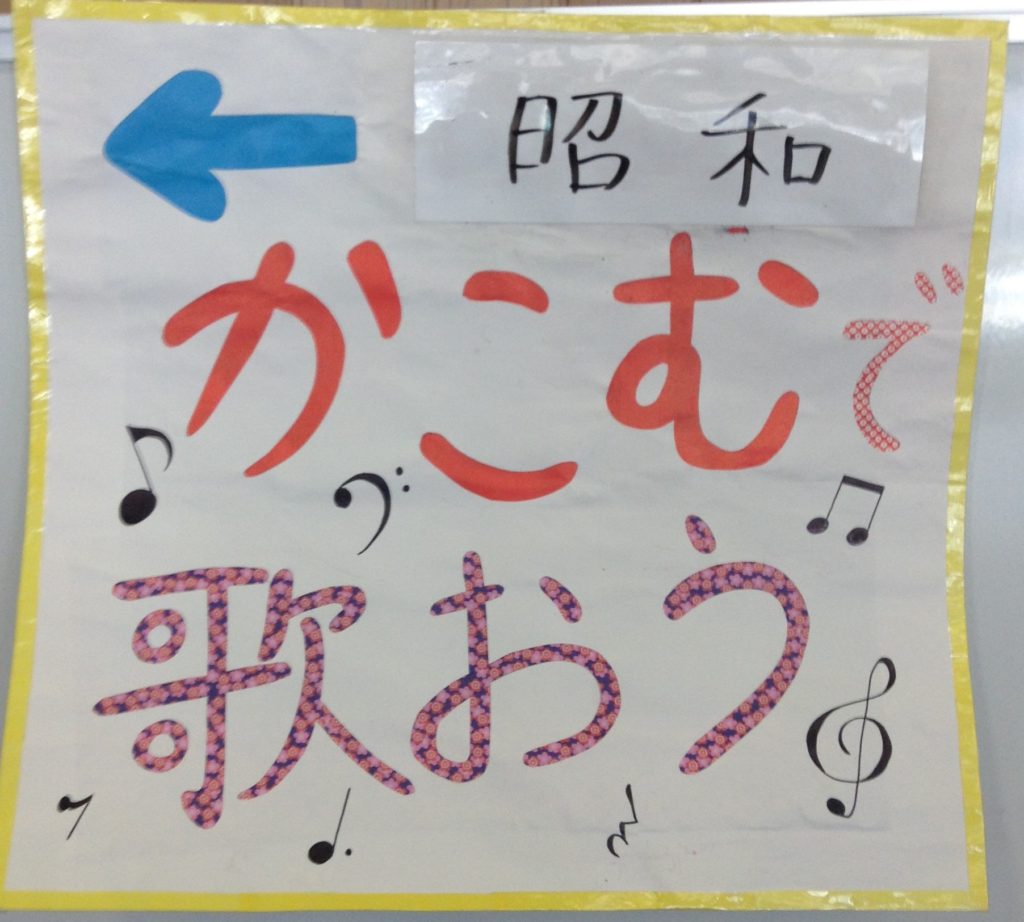 昭和
かこむで
歌おう